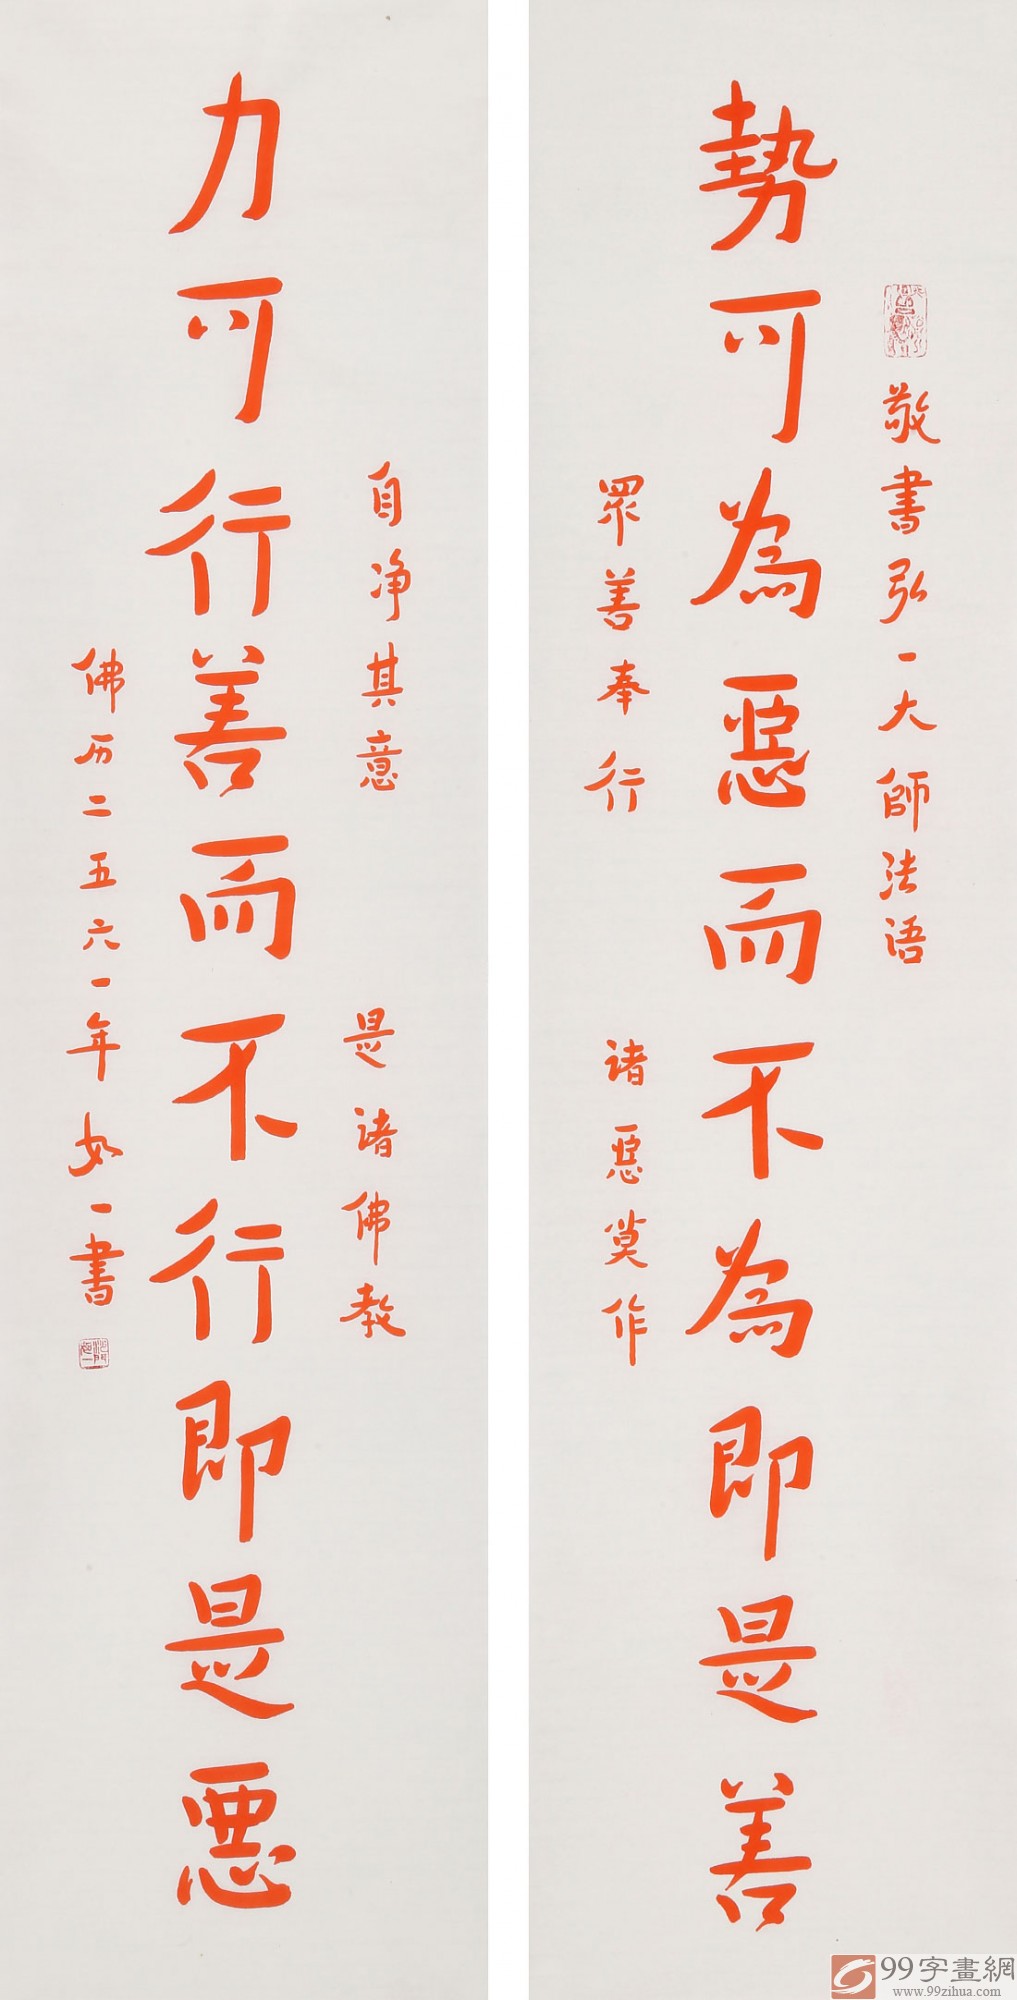 敬書弘一大師法语
勢可為惡而不為即是善
眾善奉行
诸惡莫作
自净其意
是诸佛教
力可行善而不行即是惡
佛历二五六一年如一書
99字畫網
www.99zihua.com